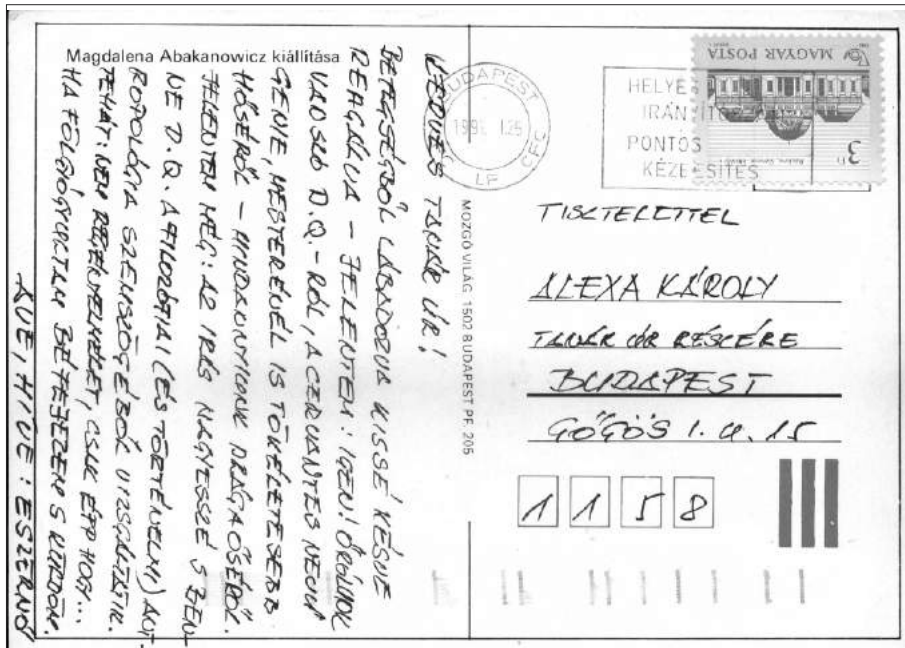 Magdalena Abakanowicz kiállítása
KEDVES TANÁR ÚR!
BETEGSÉGBŐL LÁBADOZVA KISSÉ KÉSVE
REAGÁLVA – JELENTEM: IGEN! ÖRÜLNÖK
VADSZÓ D.Q.-RÓL, A CERVANTES NEVŰ
GÉNIE, MESTERÉNÉL IS TÖKÉLETESEBB
HŐSÉRŐL – MINDANNYIUNK DRÁGA ŐSÉRŐL.
JELENTEM MÉG: AZ ÍRÁS NAGYESSZÉ S BEN-
NE D.Q. A FILOZÓFIAI (ÉS TÖRTÉNELMI) ANT-
ROPOLÓGIA SZEMSZÖGÉBŐL VIZSGÁLTATIK.
TEHÁT: NEM REGÉNYELMÉLET, CSAK ÉPP HOGY...
HA FÖLGYÓGYULTAM BEFEJEZEM S KÜLDÖM.
AVE, HÍVE: ESZERNŐ
MOZGÓ VILÁG 1502 BUDAPEST PF. 205
BUDAPEST
125
LF
HELYES
IRÁNYÍTÓSZÁM
PONTOS
KÉZBESÍTÉS
MAGYAR POSTA
3
TISZTELETTEL
ALEXA KÁROLY
TANÁR ÚR RÉSZÉRE
BUDAPEST
GŐGÖS I. U. 15
1158